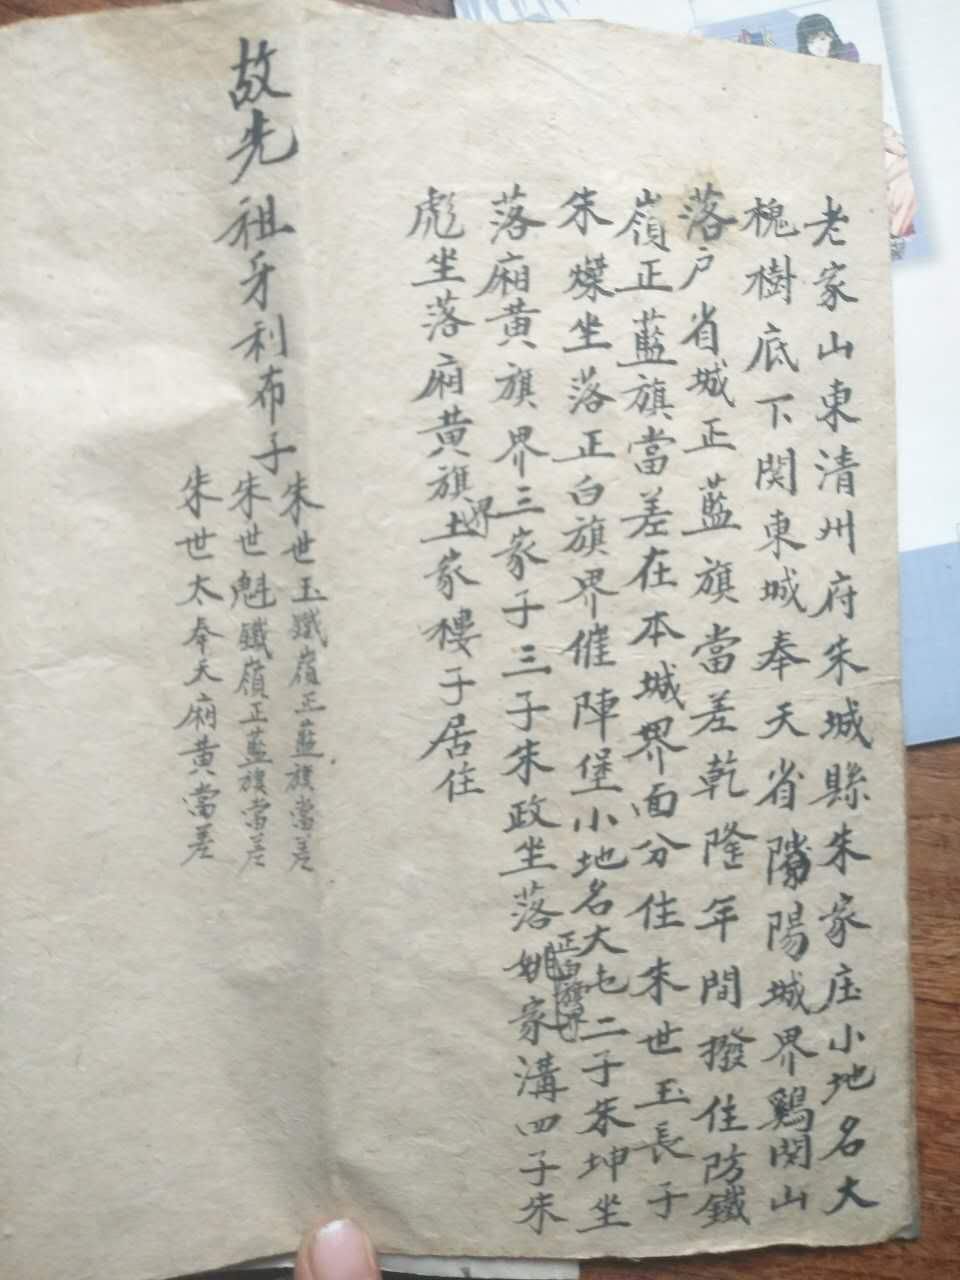 老家山東清州府朱城縣朱家庄小地名大
槐樹底下関東城奉天省陽城界鷄関山
落户省城正藍旗當差乾隆年間撥住防鐵
嶺正藍旗當差在本城界面分住朱世玉長子
朱燦坐落正白旗界催陣堡小地名大屯二子朱坤坐
正白旗界
落廂黄旗界三家子三子朱政坐落姚家溝四子朱
彪坐落廂黄旗界土家樓子居住
故先祖牙利布子
朱世玉鐵嶺正藍旗當差
朱世魁鐵嶺正藍旗當差
朱世太奉天廂黄當差